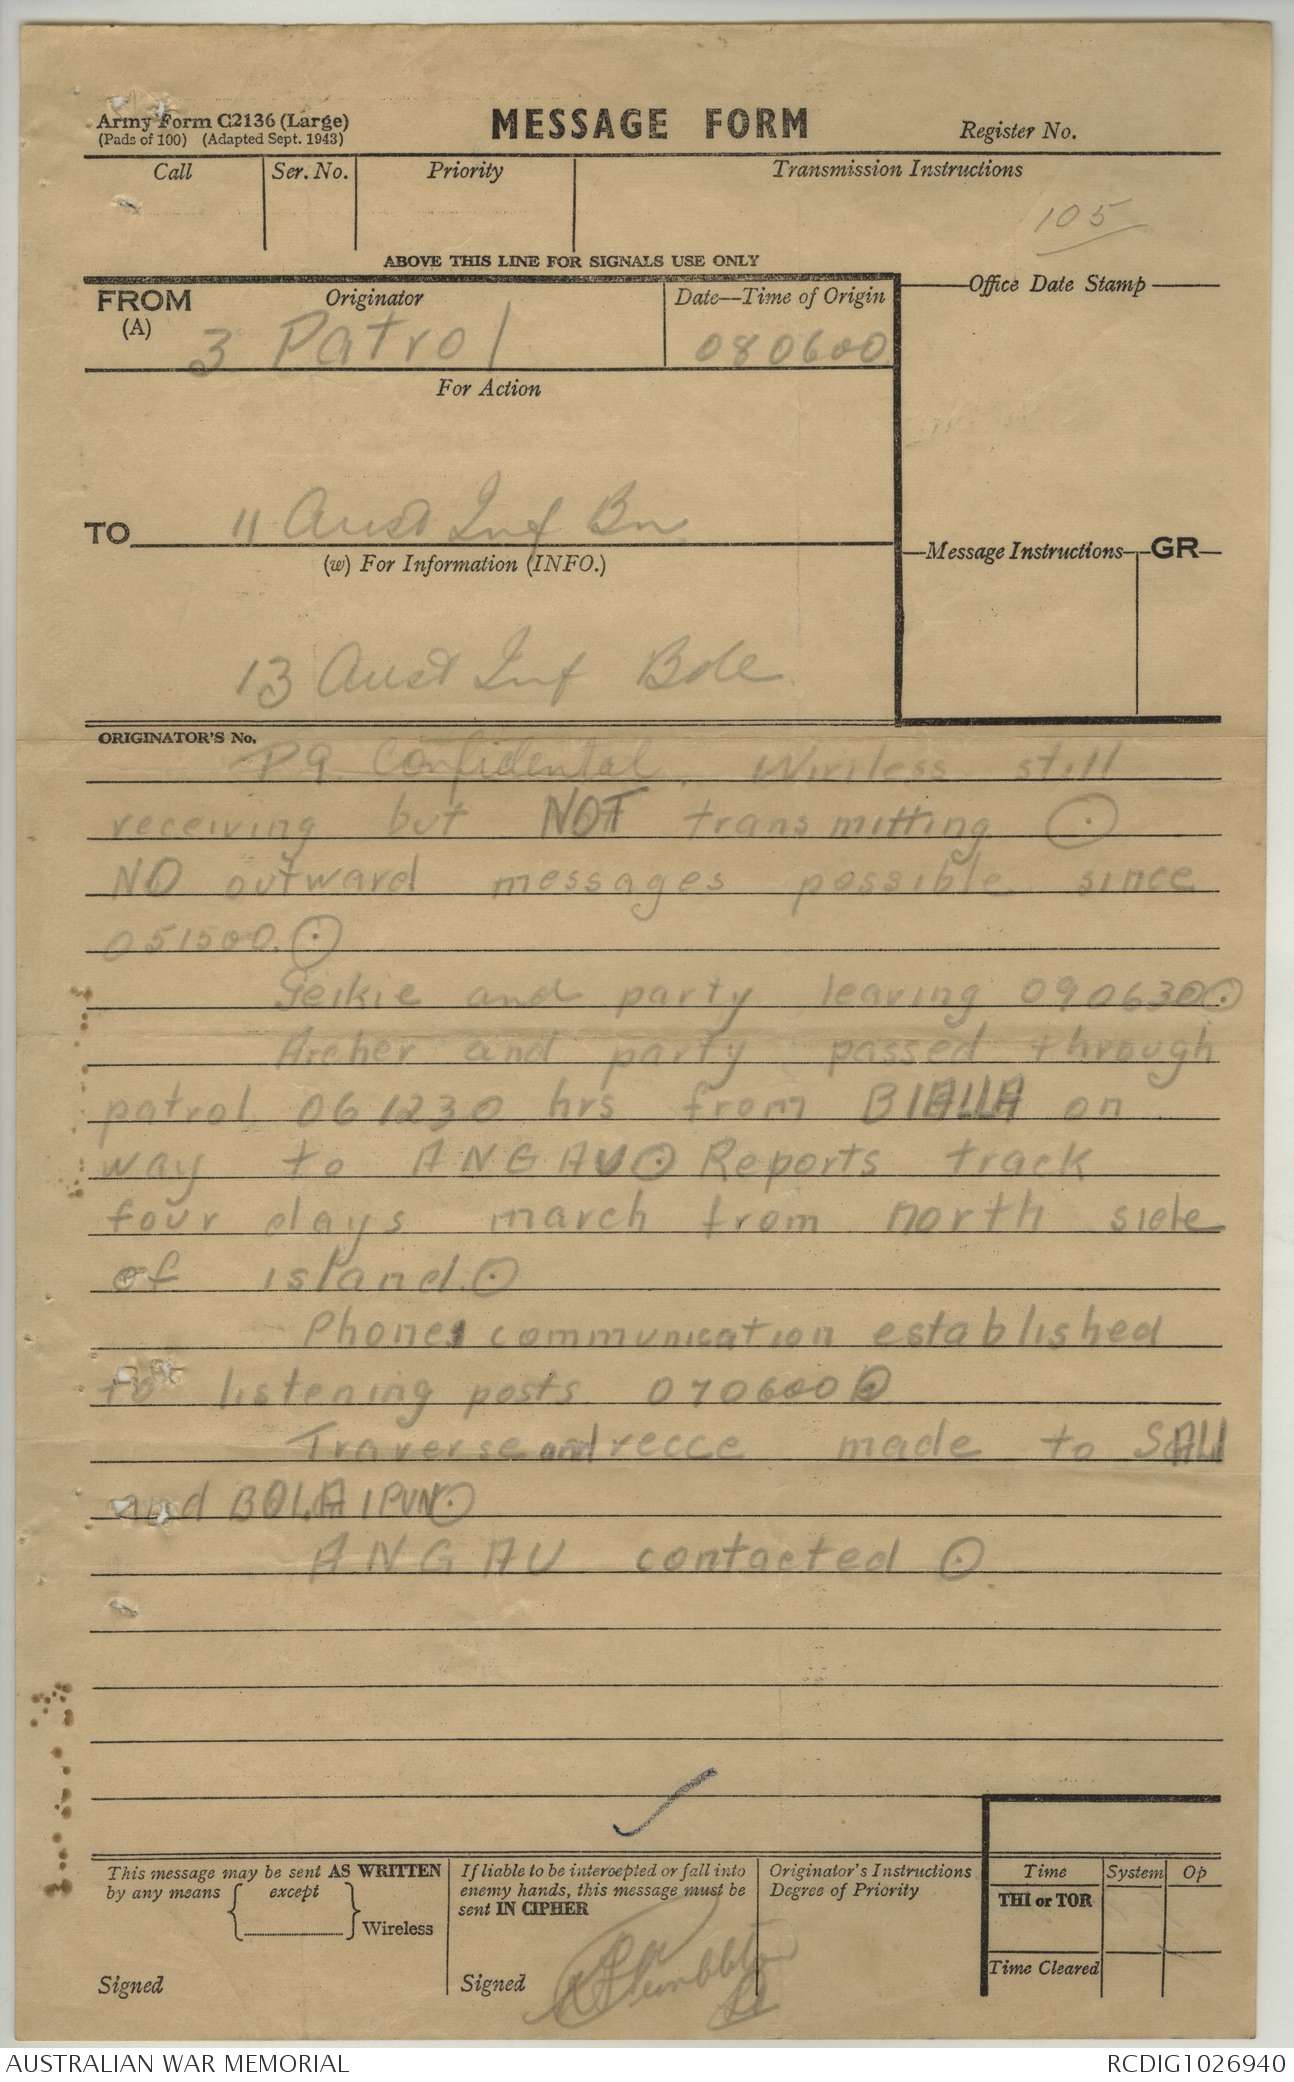 Army Form C2136 (Large)
(Pads of 100) (Adapted Sept. 1943)
MESSAGE FORM
Register No.
Call
Ser. No.
Priority
Transmission Instructions
105
ABOVE THIS LINE FOR SIGNALS USE ONLY
FROM
(A)
Originator
3 Patrol
Date—Time of Origin
080600
Office Date Stamp
For Action
TO
11 Aust Inf Bn
(w) For Information (INFO.)
13 Aust Inf Bde
Message Instructions
GR
ORIGINATOR'S No.
P9 Confidental. Wirless still
receiving but NOT transmitting ⊙
NO outward messages possible since
051500. ⊙
Geikie and party leaving 090630 ⊙
Archer and party passed through
patrol 061230 hrs from BIALLA on
way to ANGAU ⊙ Reports track
four days march from north side
of island. ⊙
Phone communication established
to listening posts 070600 ⊙
Traverse and recce made to SALI
and BOLAIPUN ⊙
ANGAU contacted ⊙
This message may be sent AS WRITTEN
by any means { except } Wireless
Signed
If liable to be intercepted or fall into
enemy hands, this message must be
sent IN CIPHER
Signed
Lt
Originator's Instructions
Degree of Priority
Time
System
Op
THI or TOR
Time Cleared
AUSTRALIAN WAR MEMORIAL
RCDIG1026940